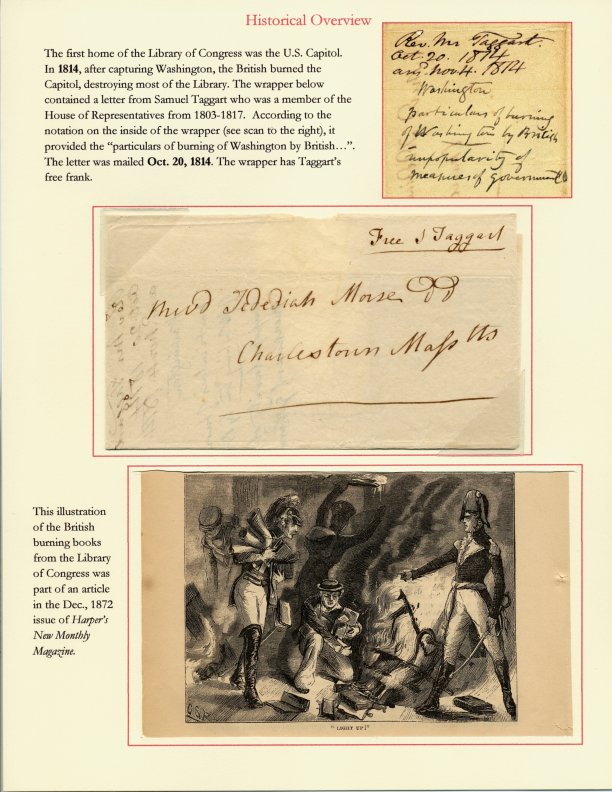 Historical Overview
The first home of the Library of Congress was the U.S. Capitol.
In 1814, after capturing Washington, the British burned the
Capitol, destroying most of the Library. The wrapper below
contained a letter from Samuel Taggart who was a member of the
House of Representatives from 1803-1817. According to the
notation on the inside of the wrapper (see scan to the right), it
provided the “particulars of burning of Washington by British…”.
The letter was mailed Oct. 20, 1814. The wrapper has Taggart’s
free frank.
Rev. Mr Taggart.
Oct. 20. 1814
ansd Nov 4. 1814
Washington
particulars of burning
of Washington by British
unpopularity of
measures of Government
Free S Taggart
Revd Jedediah Morse DD
Charlestown Mass tts
This illustration
of the British
burning books
from the Library
of Congress was
part of an article
in the Dec., 1872
issue of Harper’s
New Monthly
Magazine.
"LIGHT UP!"